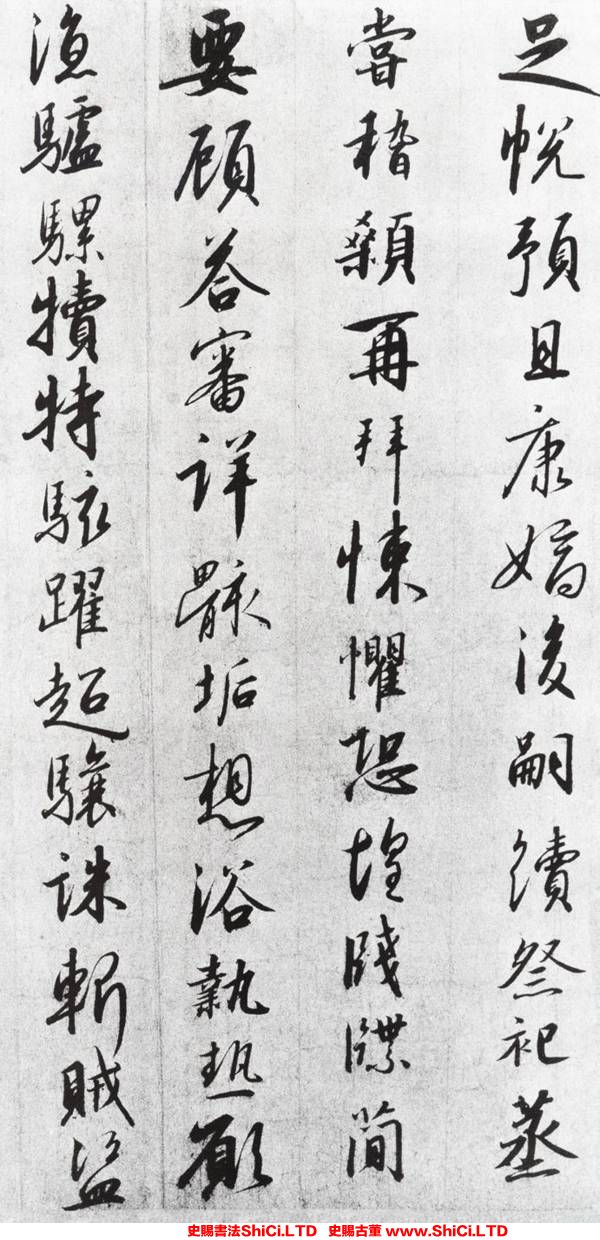 足悦預且康嫡後嗣續祭祀蒸
嘗稽顙再拜悚懼恐惶牋牒簡
要顧荅審詳骸垢想浴執熱願
涼驢騾犢特駭躍超驤誅斬賊盜
史賜書法ShiCi.LTD 史賜古董 www.ShiCi.LTD